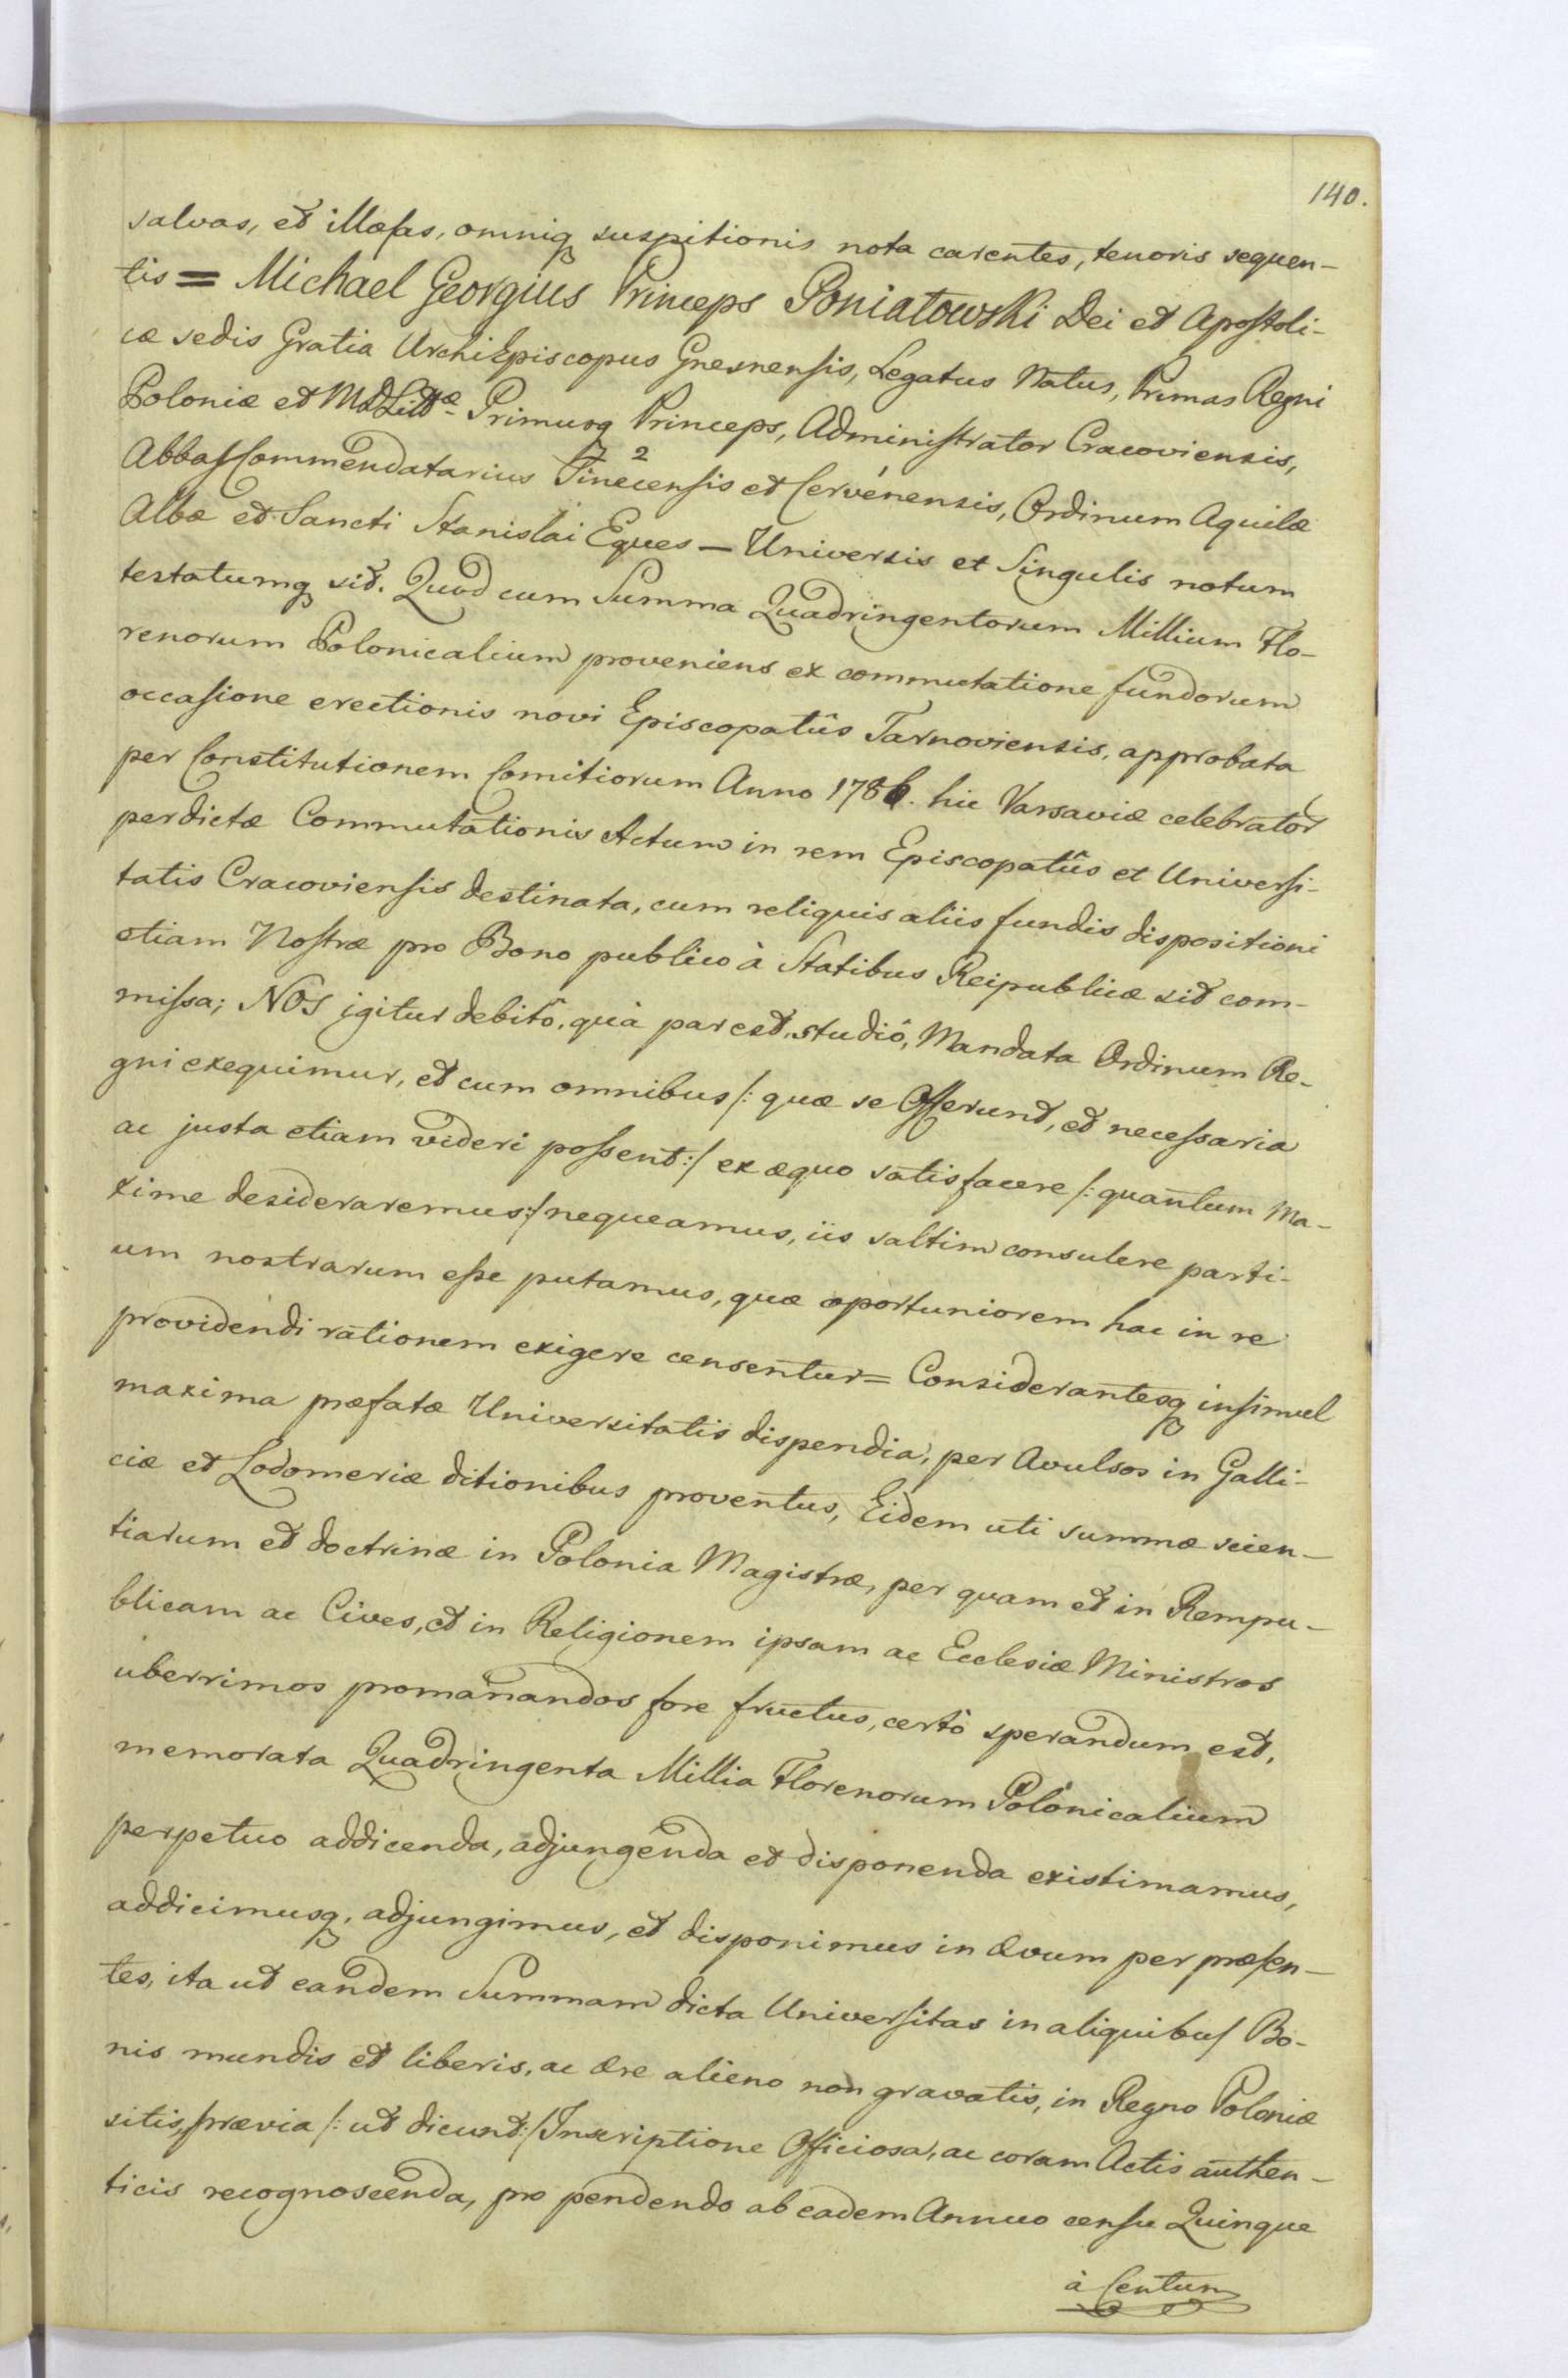 140.
salvas, et illæsas, omniq suspitionis nota carentes, tenoris sequen-
tis = Michael Georgius Princeps Poniatowski Dei et Apostoli-
cæ sedis Gratia ArchiEpiscopus Gnesnensis, Legatus Natus, Primas Regni
Poloniæ et MDLittæ Primusq Princeps, Administrator Cracoviensis,
Abbas Commendatarius Tinecensis et Cervenensis, Ordinum Aquilæ
Albæ et Sancti Stanislai Eques — Universis et Singulis notum
testatumq sit. Quod cum Summa Quadringentorum Millium Flo-
renorum Polonicalium proveniens ex commutatione fundorum
occasione erectionis novi Episcopatûs Tarnoviensis, approbata
per Constitutionem Comitiorum Anno 1786. hic Varsaviæ celebrator
perdictæ Commutationis Actum in rem Episcopatûs et Universi-
tatis Cracoviensis destinata, cum reliquis aliis fundis dispositioni
etiam Nostræ pro Bono publico à Statibus Reipublicæ sit com-
missa; NOS igitur debitô, quà par est, studiô, Mandata Ordinum Re-
gni exequimur, et cum omnibus /: quæ se Offerunt, et necessaria
ac justa etiam videri possent :/ ex æquo satisfacere /: quantum Ma-
xime desideraremus :/ nequeamus, iis saltim consulere parti-
um nostrarum esse putamus, quæ oportuniorem hac in re
providendi rationem exigere censentur = Considerantesq insimul
maxima præfatæ Universitatis dispendia, per Avulsos in Galli-
ciæ et Lodomeriæ ditionibus proventus, Eidem uti summæ scien-
tiarum et doctrinæ in Polonia Magistræ, per quam et in Rempu-
blicam ac Cives, et in Religionem ipsam ac Ecclesiæ Ministros
uberrimos promanandos fore fructus, certò sperandum est,
memorata Quadringenta Millia Florenorum Polonicalium
perpetuo addicenda, adjungenda et disponenda existimamus,
addicimusq, adjungimus, et disponimus in ævum per præsen-
tes, ita ut eandem Summam dicta Universitas in aliquibus Bo-
nis mundis et liberis, ac ære alieno non gravatis, in Regno Poloniæ
sitis, prævia /: ut dicunt :/ Inscriptione Officiosa, ac coram Actis authen-
ticis recognoscenda, pro pendendo ab eadem Annuo censu Quinque
à Centum